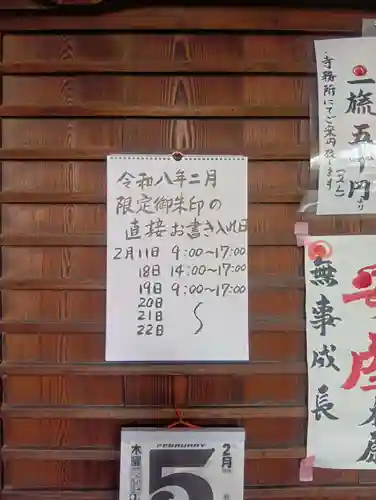 令和八年二月
限定御朱印の
直接お書き入れ日
2月11日 9:00〜17:00
18日 14:00〜17:00
19日 9:00〜17:00
20日
21日 〜
22日
一旒五千円より
寺務所にてご案内致します
無事成長
FEBRUARY
木曜
5
2月